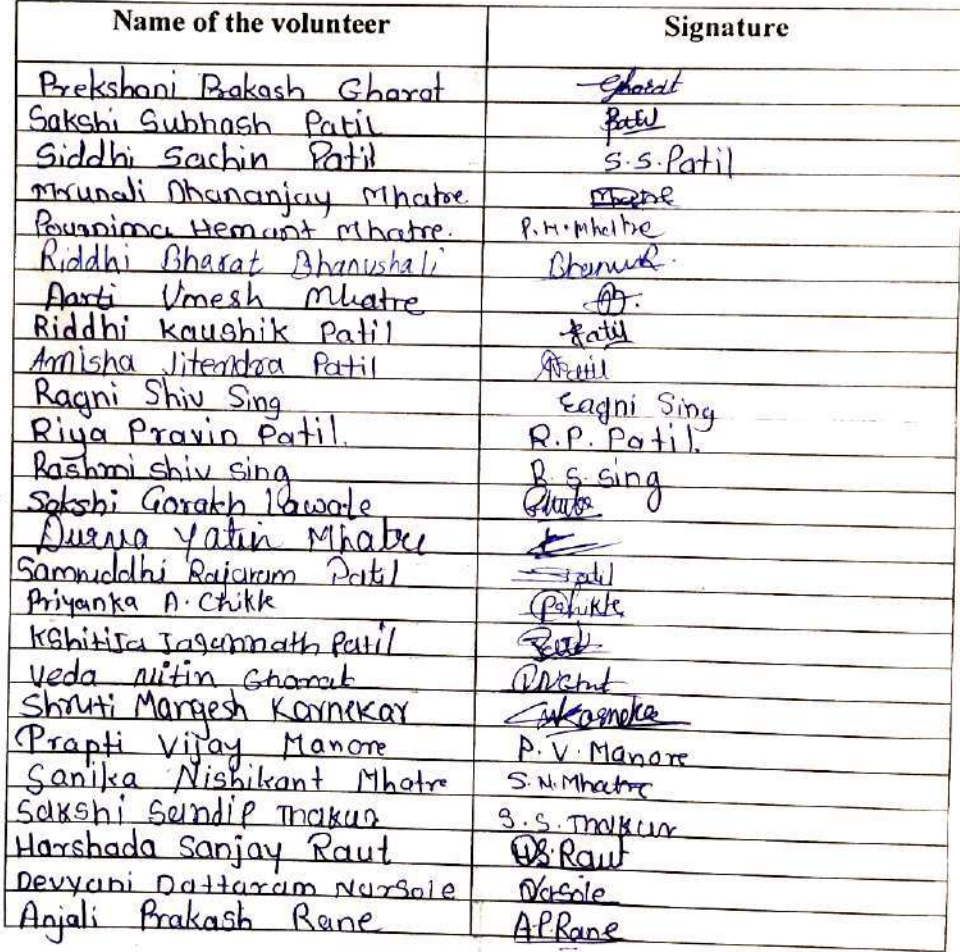 Name of the volunteer Signature
Prekshani Prakash Gharat Gharat
Sakshi Subhash Patil Patil
Siddhi Sachin Patil S.S.Patil
Mrunali Dhananjay Mhatre
Pournima Hemant Mhatre. P.H.Mhatre
Riddhi Bharat Bhanushali
Aarti Umesh Mhatre
Riddhi Kaushik Patil Patil
Amisha Jitendra Patil APatil
Ragni Shiv Sing Ragni Sing
Riya Pravin Patil. R.P. Patil.
Rashmi Shiv Sing R.S. Sing
Sakshi Gorakh Kawale
Durva Yatin Mhatre
Samruddhi Rajaram Patil
Priyanka A. Chikle
Kshitija Jagannath Patil
Veda Nitin Gharat
Shruti Mangesh Karnekar
Prapti Vijay Manore P.V. Manore
Sanika Nishikant Mhatre S.N.Mhatre
Sakshi Sandip Thakur S.S. Thakur
Harshada Sanjay Raut HS.Raut
Devyani Dattaram Narsole Narsole
Anjali Prakash Rane A.P.Rane